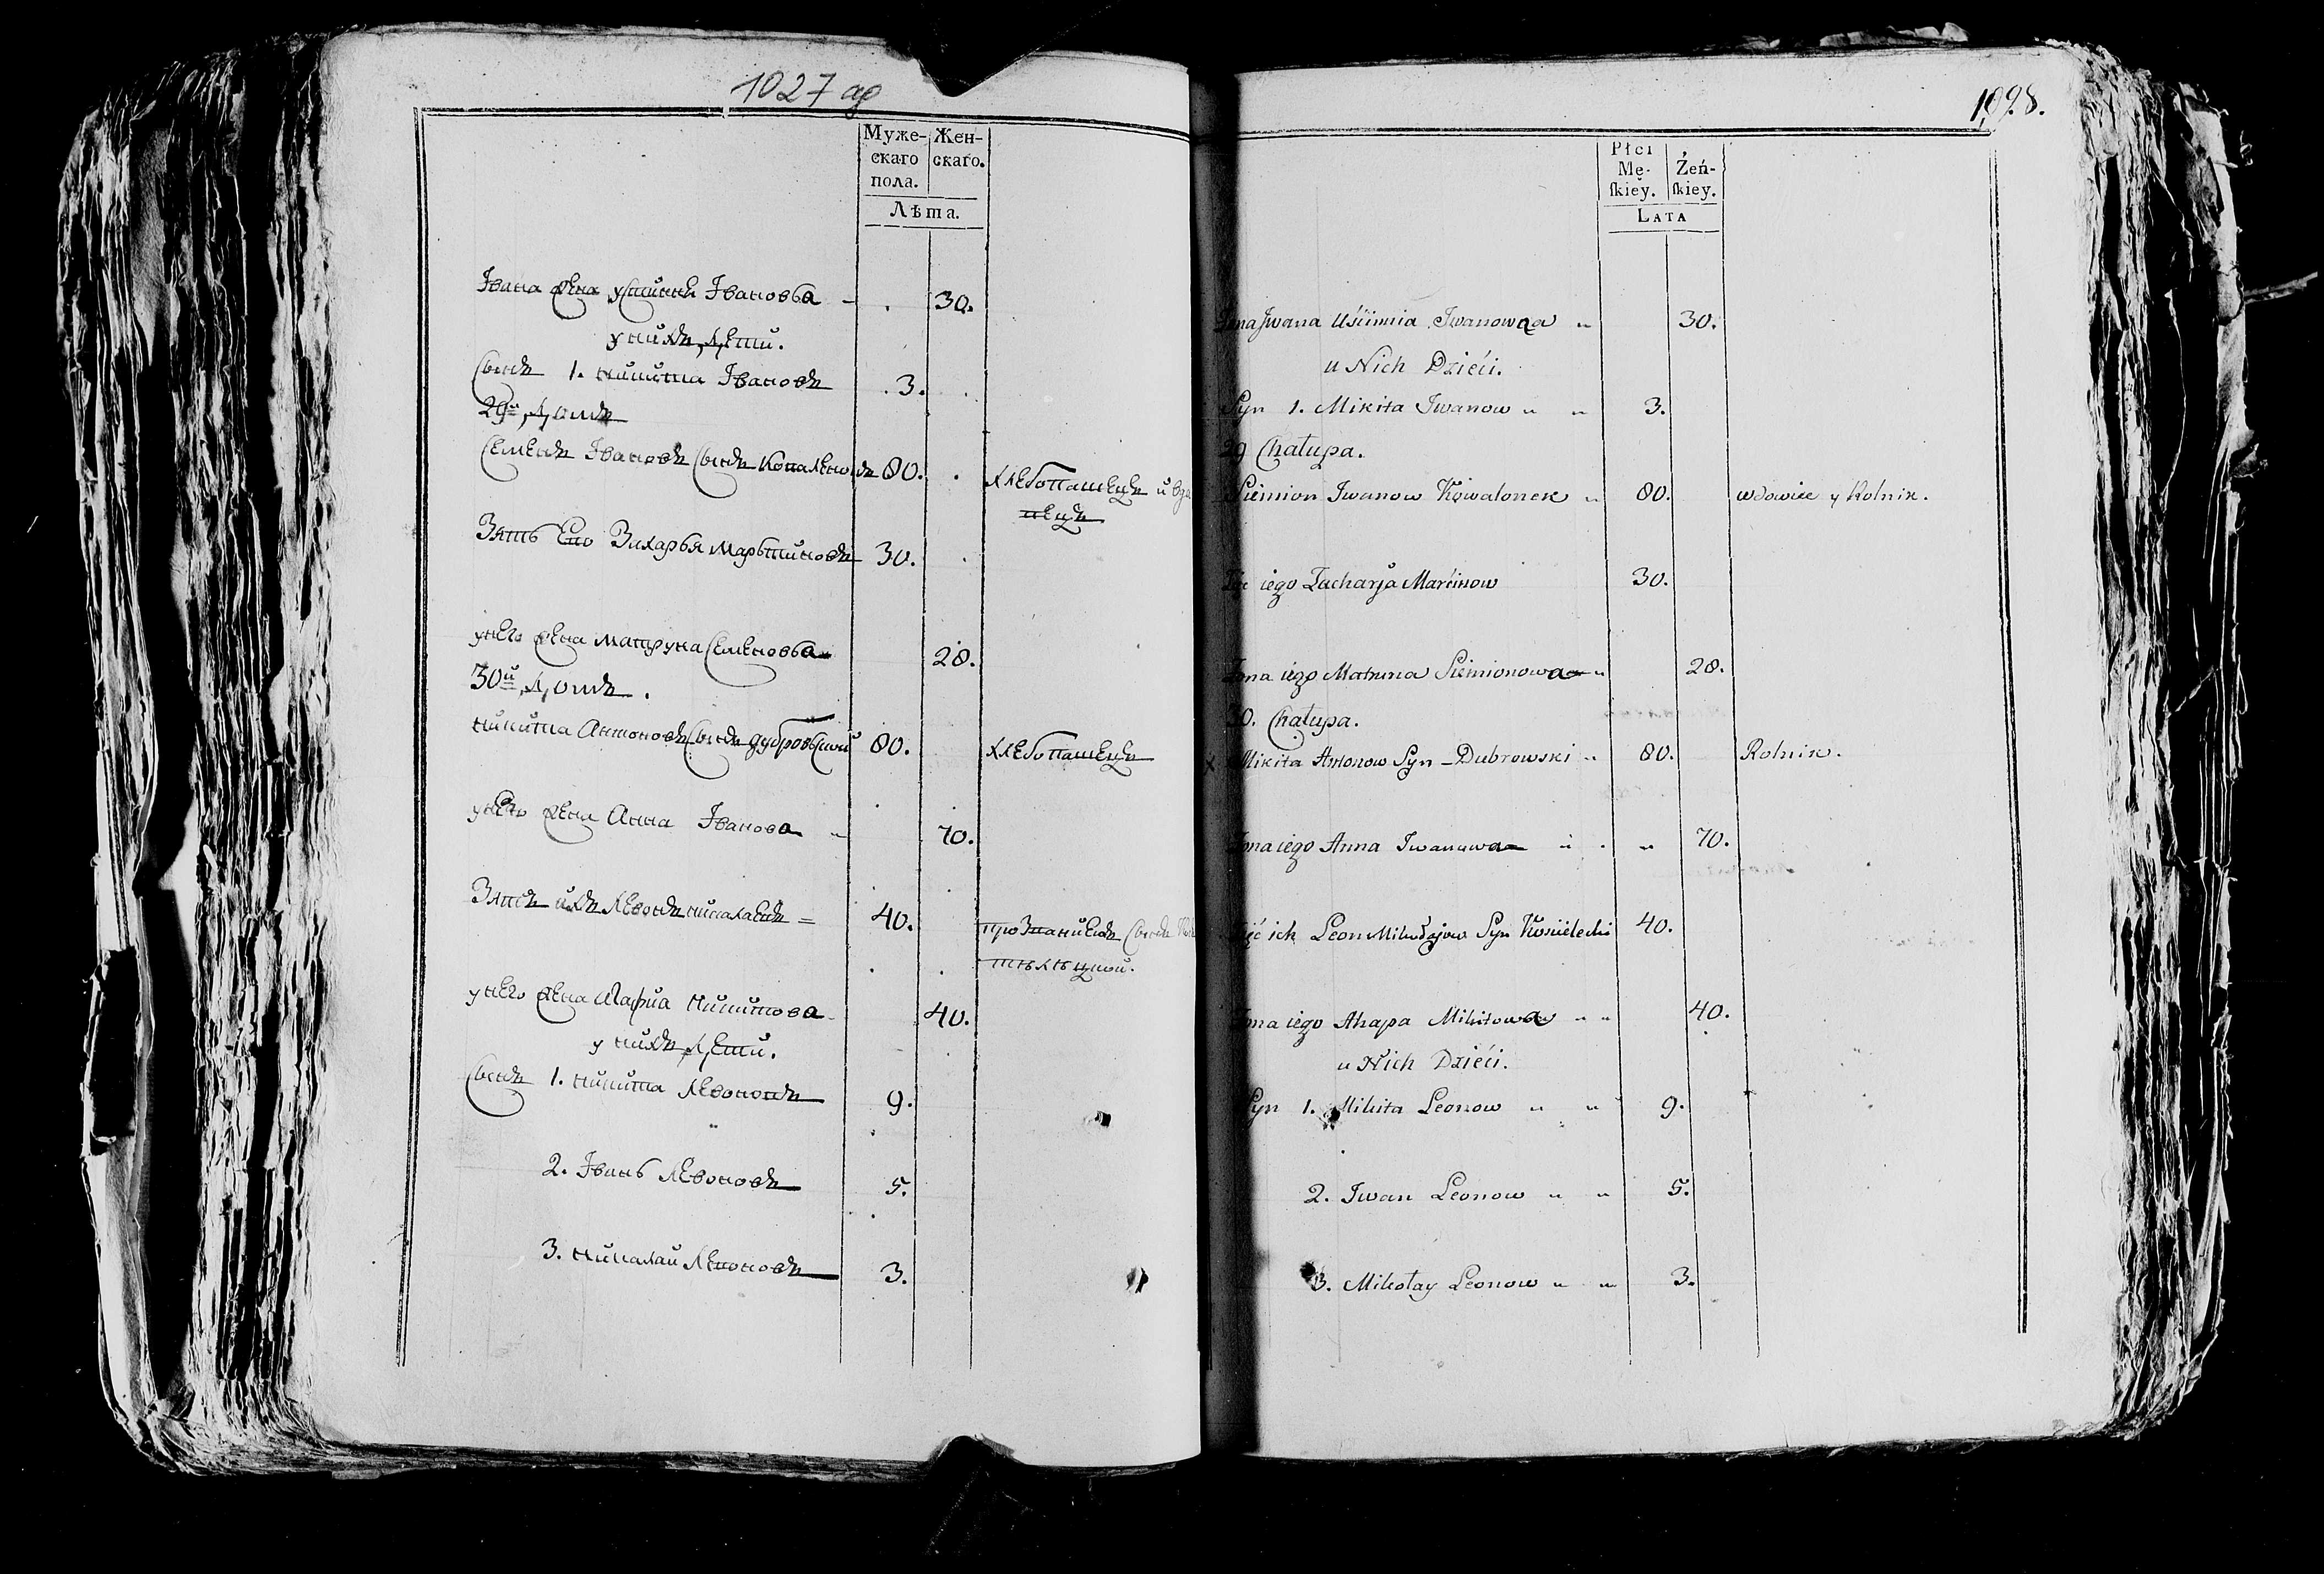 1027 ад
Муже-
скаго
пола.
Жен-
скаго.
Лѣта.
Івана жена устиння Івановва 30.
у нихъ дети.
Сынъ 1. никита Івановъ 3.
29й домъ
Семенъ Івановъ Сынъ Коваленокъ 80. хлебопашецъ и вдо
вецъ
Зять Его Захарья Мартиновъ 30.
у него жена матруна Семеновва 28.
30й домъ.
никита Антоновъ Сынъ дубровский 80. хлебопашецъ
у него жена Анна Іванова 70.
Зять ихъ Левонъ николаевъ = 40. прозваниемъ Сынъ
у него жена Никитова 40.
у нихъ дети.
Сынъ 1. никита Левоновъ 9.
2. Іванъ Левоновъ 5.
3. николай Левоновъ 3.
1028.
Płci
Mę-
skiey.
Żeń-
skiey.
LATA
Żona Jwana Uścimia Jwanowa 30.
u Nich Dzieći.
Syn 1. Mikita Jwanow 3.
29 Chałupa.
Siemion Jwanow Kowalonek 80. wdowiec y Rolnik.
Zięc iego Zacharja Marćinow 30.
Żona iego Matruna Siemionowa 28.
30. Chałupa.
x Mikita Antonow Syn Dubrowski 80. Rolnik.
Żona iego Anna Jwanowa 70.
Zięć ich Leon Mikołajow Syn 40.
Żona iego Ahapa Mikitowa 40.
u Nich Dzieći.
Syn 1. Mikita Leonow 9.
2. Jwan Leonow 5.
3. Mikołay Leonow 3.